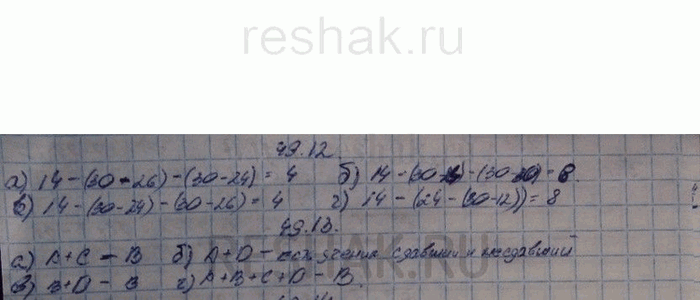 reshak.ru
49.12.
а) 14 - (30 - 26) - (30 - 24) = 4 б) 14 - (30 - ) - (30 - ) = 8.
в) 14 - (30 - 24) - (30 - 26) = 4 г) 14 - (24 - (30 - 12)) = 8
49.13.
а) A + C - B б) A + D - сдавший и несдавший
в) B + D - B г) A + B + C + D - B.
RESHAK.RU